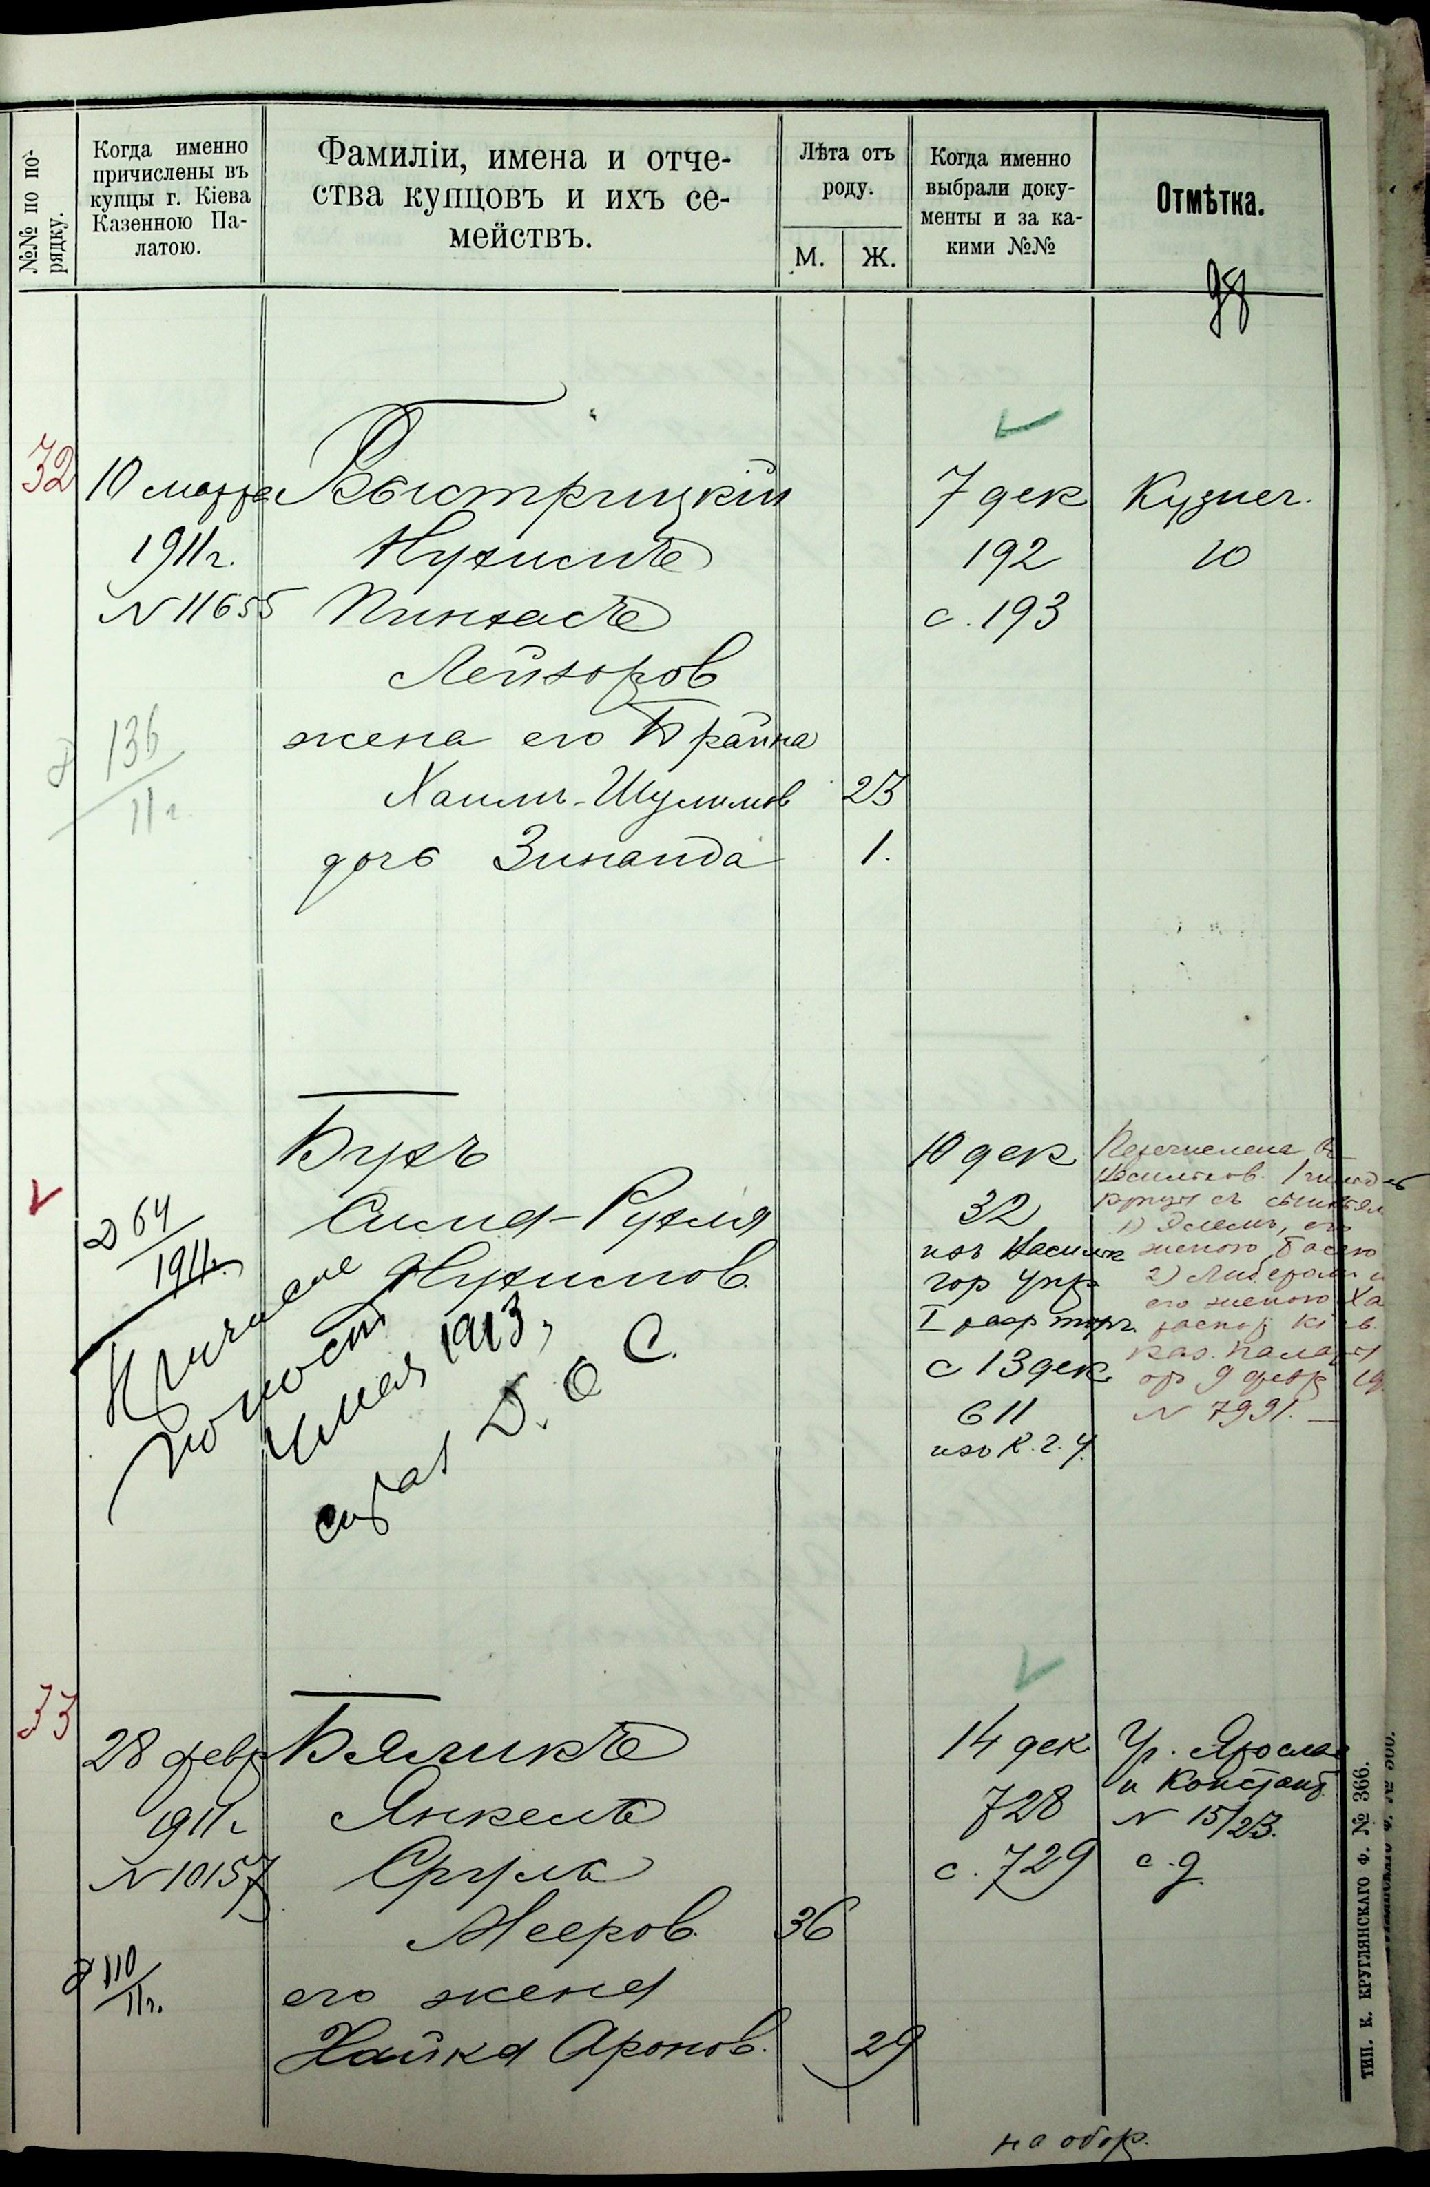 №№ по по-
рядку.
Когда именно
причислены въ
купцы г. Кіева
Казенною Па-
латою.
Фамиліи, имена и отче-
ства купцовъ и ихъ се-
мействъ.
Лѣта отъ
роду.
М.
Ж.
Когда именно
выбрали доку-
менты и за ка-
кими №№
Отмѣтка.
98
32
10 марта
1911г.
N 11655
136
11 г.
Быстрицкій
Нухимъ
Пинхасъ
Лейзоров
жена его Брайна
Хаимъ-Шулимов 23
дочь Зинаида 1.
7 дек
192
с. 193
Кузнеч.
10
Бухъ
Сима-Рухля
Нухимов.
д 64
1911г.
1913,
Д. О С.
10 дек
32
изъ Василък
гор упр
I разр торг.
с 13 дек
611
изъ К. г. У.
Перечислена въ
Васильков. 1 гильд
купцы съ сыновьям
женою Басею
2) Либером и
его женою Ха
распор Кіев.
Каз. Палаты
от 9 февр 19
N 7991. —
33
28 февр
1911г
N 10157
д 110
11г.
Бяликъ
Янкель
Срулъ
Мееров. 36
его жена
Хайка Аронов. 29
14 дек
728
с. 729
Уг. Яросла
и Констант
N 15/23.
с. д.
на обор.
ТИП. К. КРУГЛЯНСКАГО Ф. № 366.